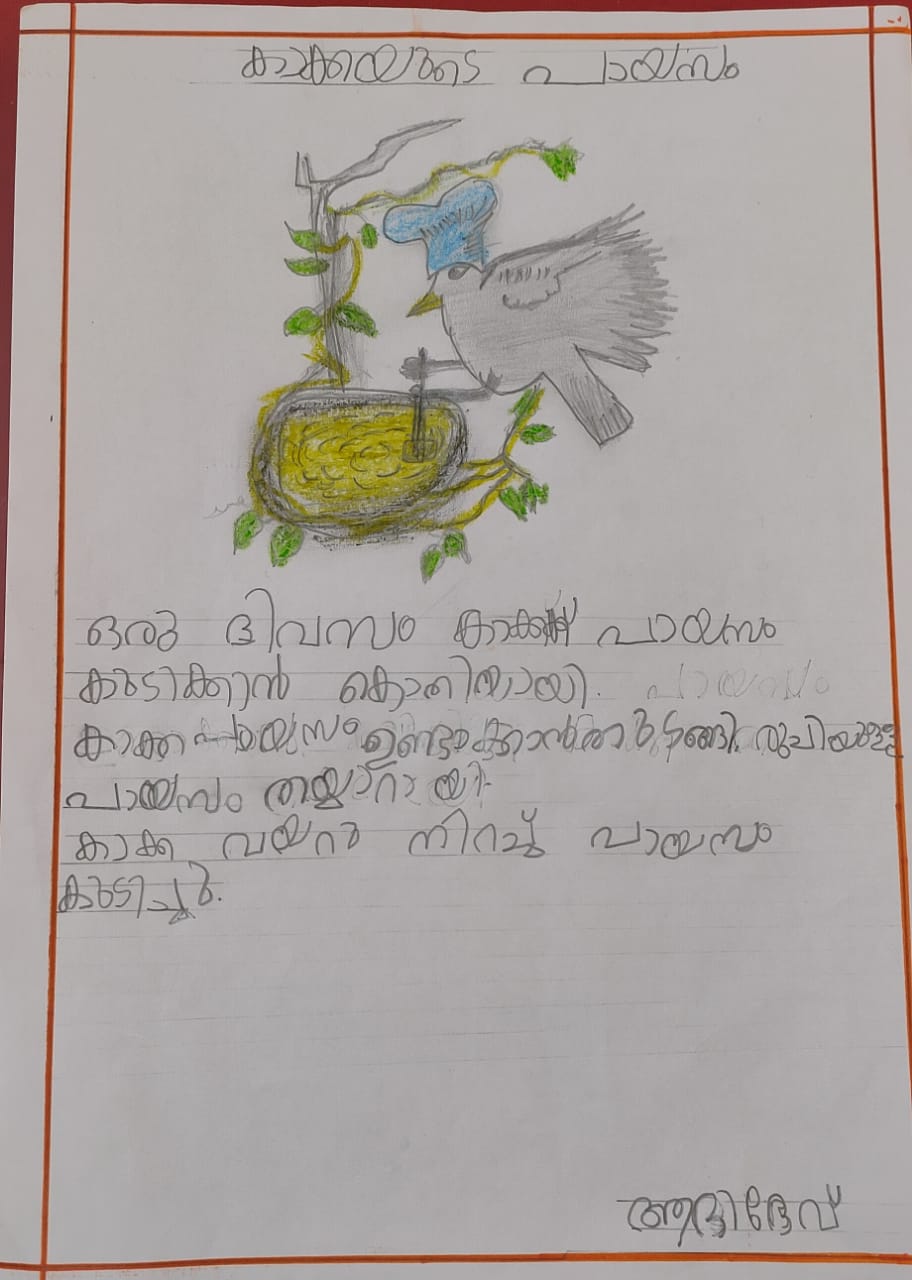 കാക്കയുടെ പായസം
ഒരു ദിവസം കാക്കക്ക് പായസം
കുടിക്കാൻ കൊതിയായി. പായസം
കാക്ക പായസം ഉണ്ടാക്കാൻ തുടങ്ങി. രുചിയുള്ള
പായസം തയ്യാറായി.
കാക്ക വയറു നിറച്ച് പായസം
കുടിച്ചു.
ആദിദേവ്